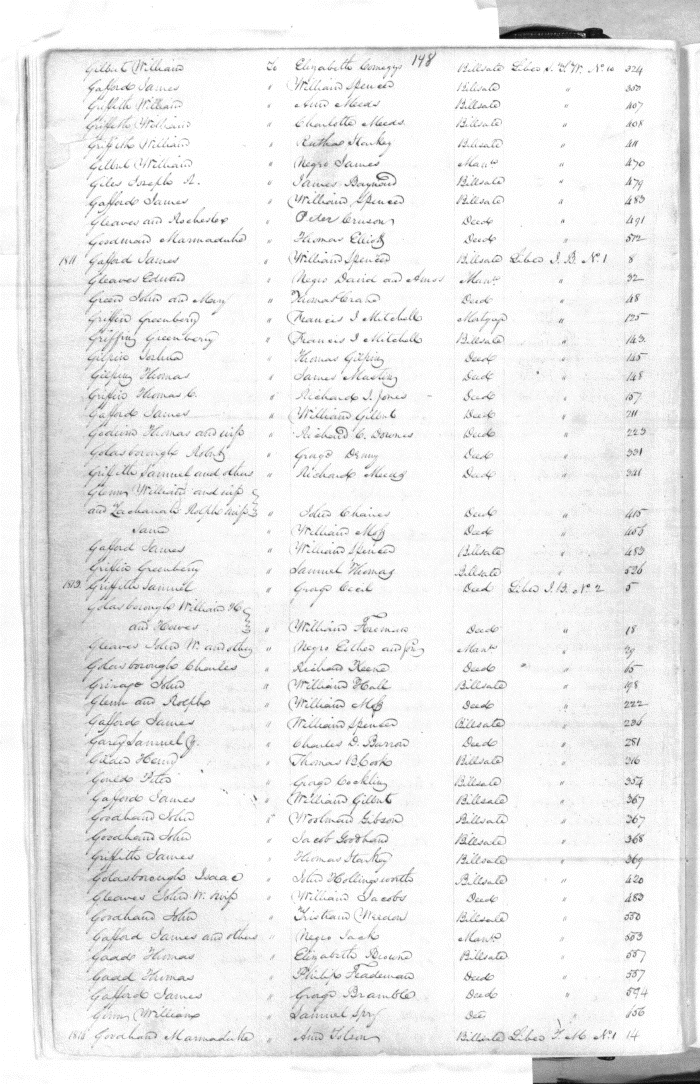 148
Gilbert William To Elizabeth Comegys Billsale Liber S. T. W. No 10 324
Gafford James " William Spencer Billsale " 350
Griffith William " Ann Meeds Billsale " 407
Griffith William " Charlotte Meeds Billsale " 408
Griffith William " Harkey Billsale " 411
Gilbert William " Negro James Man. " 470
Giles Joseph R. " James Baynard Billsale " 479
Gafford James " William Spencer Billsale " 483
Gleaves and Rochester " Peter Cruson Deed " 491
Goodman Marmaduke " Thomas Elliott Deed " 572
1811 Gafford James " William Spencer Billsale Liber J. B. No 1 8
Gleaves Edward " Negro David and Amos Man. " 32
Green John and Mary " Thomas Deed " 48
Griffin Greenberry " Francis J Mitchell Mortgage " 125
Griffin Greenberry " Francis J Mitchell Billsale " 143
Gilpin Joshua " Thomas Gilpin Deed " 145
Gilpin Thomas " James Mastin Deed " 148
Griffin Thomas C. " Richard J. Jones Deed " 157
Gafford James " William Gilbert Deed " 211
Godwin Thomas and wife " Richard C. Downes Deed " 223
Goldsborough Robert " George Denny Deed " 331
Griffith Samuel and others " Richard Meeds Deed " 341
Glenn William and wife
and Zachariah Rolph & wife " John Chaires Deed " 415
Same " William Moss Deed " 455
Gafford James " William Spencer Billsale " 483
Griffin Greenberry " Samuel Thomas Billsale " 536
1812 Griffith Samuel " George Cecil Deed Liber J. B. No 2 5
Goldsborough William H
and Howes " William Foreman Deed " 18
Gleaves John W. and others " Negro Esther and Man. " 29
Goldsborough Charles " Richard Keene Deed " 65
John " William Hall Billsale " 198
Glenn and Rolph " William Moss Deed " 222
Gafford James " William Spencer Billsale " 236
Garey Samuel Y. " Charles D. Barrow Deed " 281
Henry " Thomas B Cook Billsale " 316
Gould Peter " George Cocklin Billsale " 354
Gafford James " William Gilbert Billsale " 367
Goodhand John " Woolman Gibson Billsale " 367
Goodhand John " Jacob Goodhand Billsale " 368
Griffith James " Thomas Harkey Billsale " 369
Goldsborough Isaac " John Hollingsworth Billsale " 420
Gleaves John W. & wife " William Jacobs Deed " 480
Goodhand John " Tristram Weedon Billsale " 550
Gafford James and others " Negro Jack Man. " 553
Gadd Thomas " Elizabeth Browne Billsale " 557
Gadd Thomas " Philip Feddeman Deed " 557
Gafford James " George Bramble Deed " 594
William " Samuel Spry Dee " 656
1813 Goodhand Marmaduke " Ann Tolson Billsale Liber T. M. No 1 14